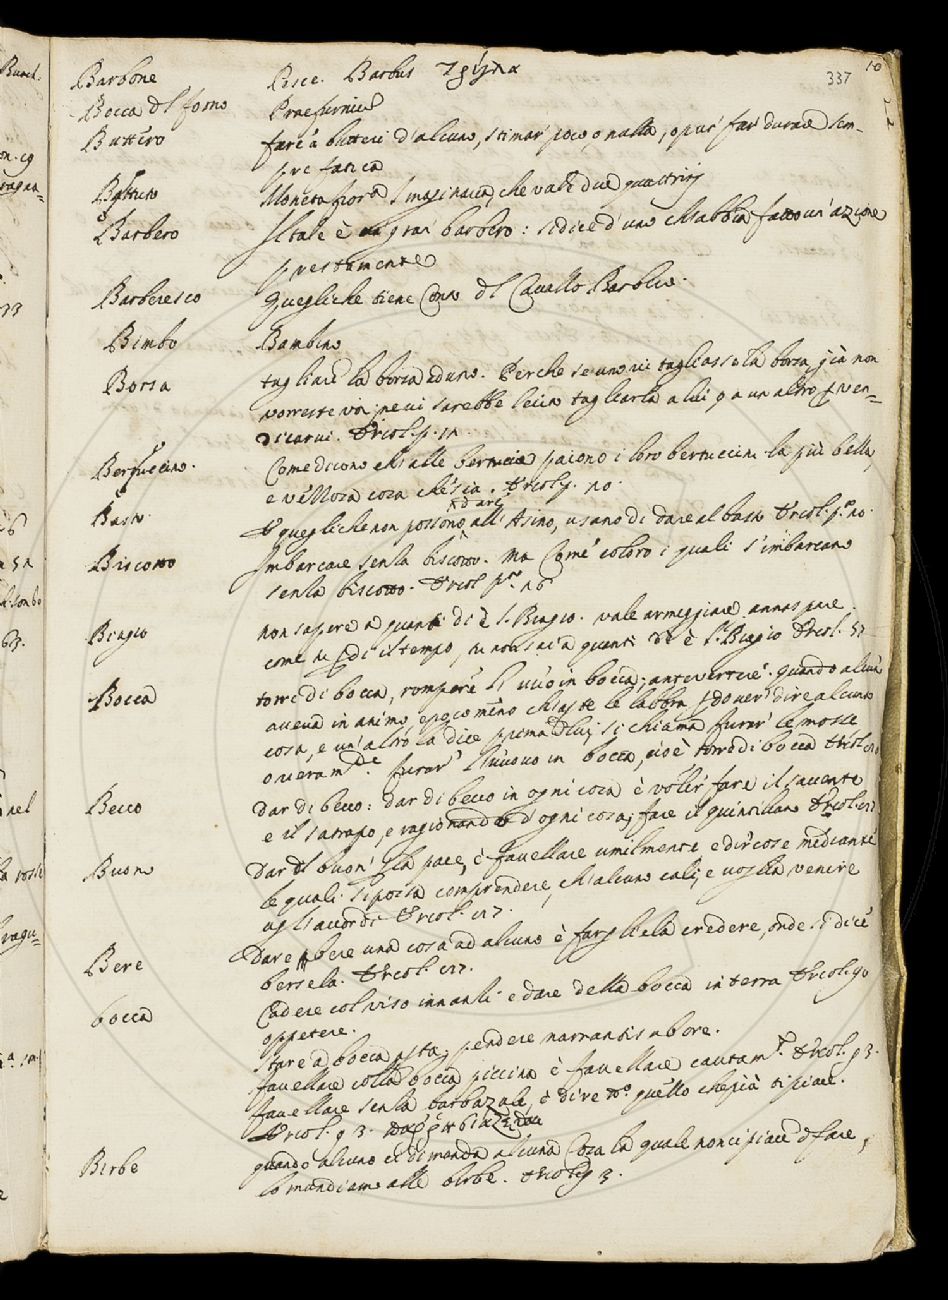 10
337
Barbone Pesce. Barbus τρίγλα
Bocca dl forno Praefurniũ
Buttero fare a butteri d'alcuno, stimar poco o nulla, o pur far durare sem-
pre fatica
Battuto Moneta Imaginaria, che vale due quattrini
Barbero Il tale è un gran barbero: si dice d'uno ch'abbia fatto un'azione
prestamente
Barberesco Quegli che tiene Cura dl Cavallo Barbero.
Bimbo Bambino
Borsa tagliare la borsa ad uno. Perche se uno vi tagliasse la borsa, già non
vorreste voi, ne vi sarebbe lecito tagliarla a lui, o a un altro p ven-
dicarvi. Ercol. p.
Bertuccino. Come dicono ch'alle bertuccie paiono i loro bertuccini la più bella,
e vezzosa cosa che sia. Ercol. p.
Basto. E quegli che non possono dare all'Asino, usano di dare al basto Ercol. p.
Biscotto Imbarcare senza biscotto. ma Come coloro i quali s'imbarcano
senza biscotto. Ercol.
Biagio non sapere a quanti dì è S. Biagio. vale armeggiare annaspare.
come tu p di il tempo, tu non sai a quanti dì è S. Biagio Ercol.
Bocca torre di bocca, rompere l'uovo in bocca; antevertere. quando alcuno
aveva in animo, e già mosso le labbra p dover dire alcuna
cosa, e un'altro la dice prima di lui, si chiama furar le mosse
overamte. furar l'uovo in bocca, cioè torre di bocca Ercol.
Becco dar di becco: dar di becco in ogni cosa è voler fare il saccente
e il satrapo, e ragionando d'ogni cosa, fare il quintiliano Ercol.
Buono Dar dl buon p la pace, è favellare umilmente e dir cose mediante
le quali si possa comprendere, ch'alcuno cali, e voglia venire
agli accordi Ercol.
Bere Dare a bere una cosa ad alcuno è fargliela credere, onde si dice
bersela. Ercol.
bocca Cadere col viso innanzi e dare della bocca in terra Ercol. 90
oppetere.
stare a bocca aperta, pendere narrantis ab ore.
favellare colla bocca piccina è favellare cautamte. Ercol. 93.
favellare senza barbazzale, è dire tto. quello che più ti piace.
Ercol. 93.
Birbe quando alcuno ci dimanda alcuna Cosa la quale non ci piace di fare,
lo mandiamo alle birbe. Ercol. 93.